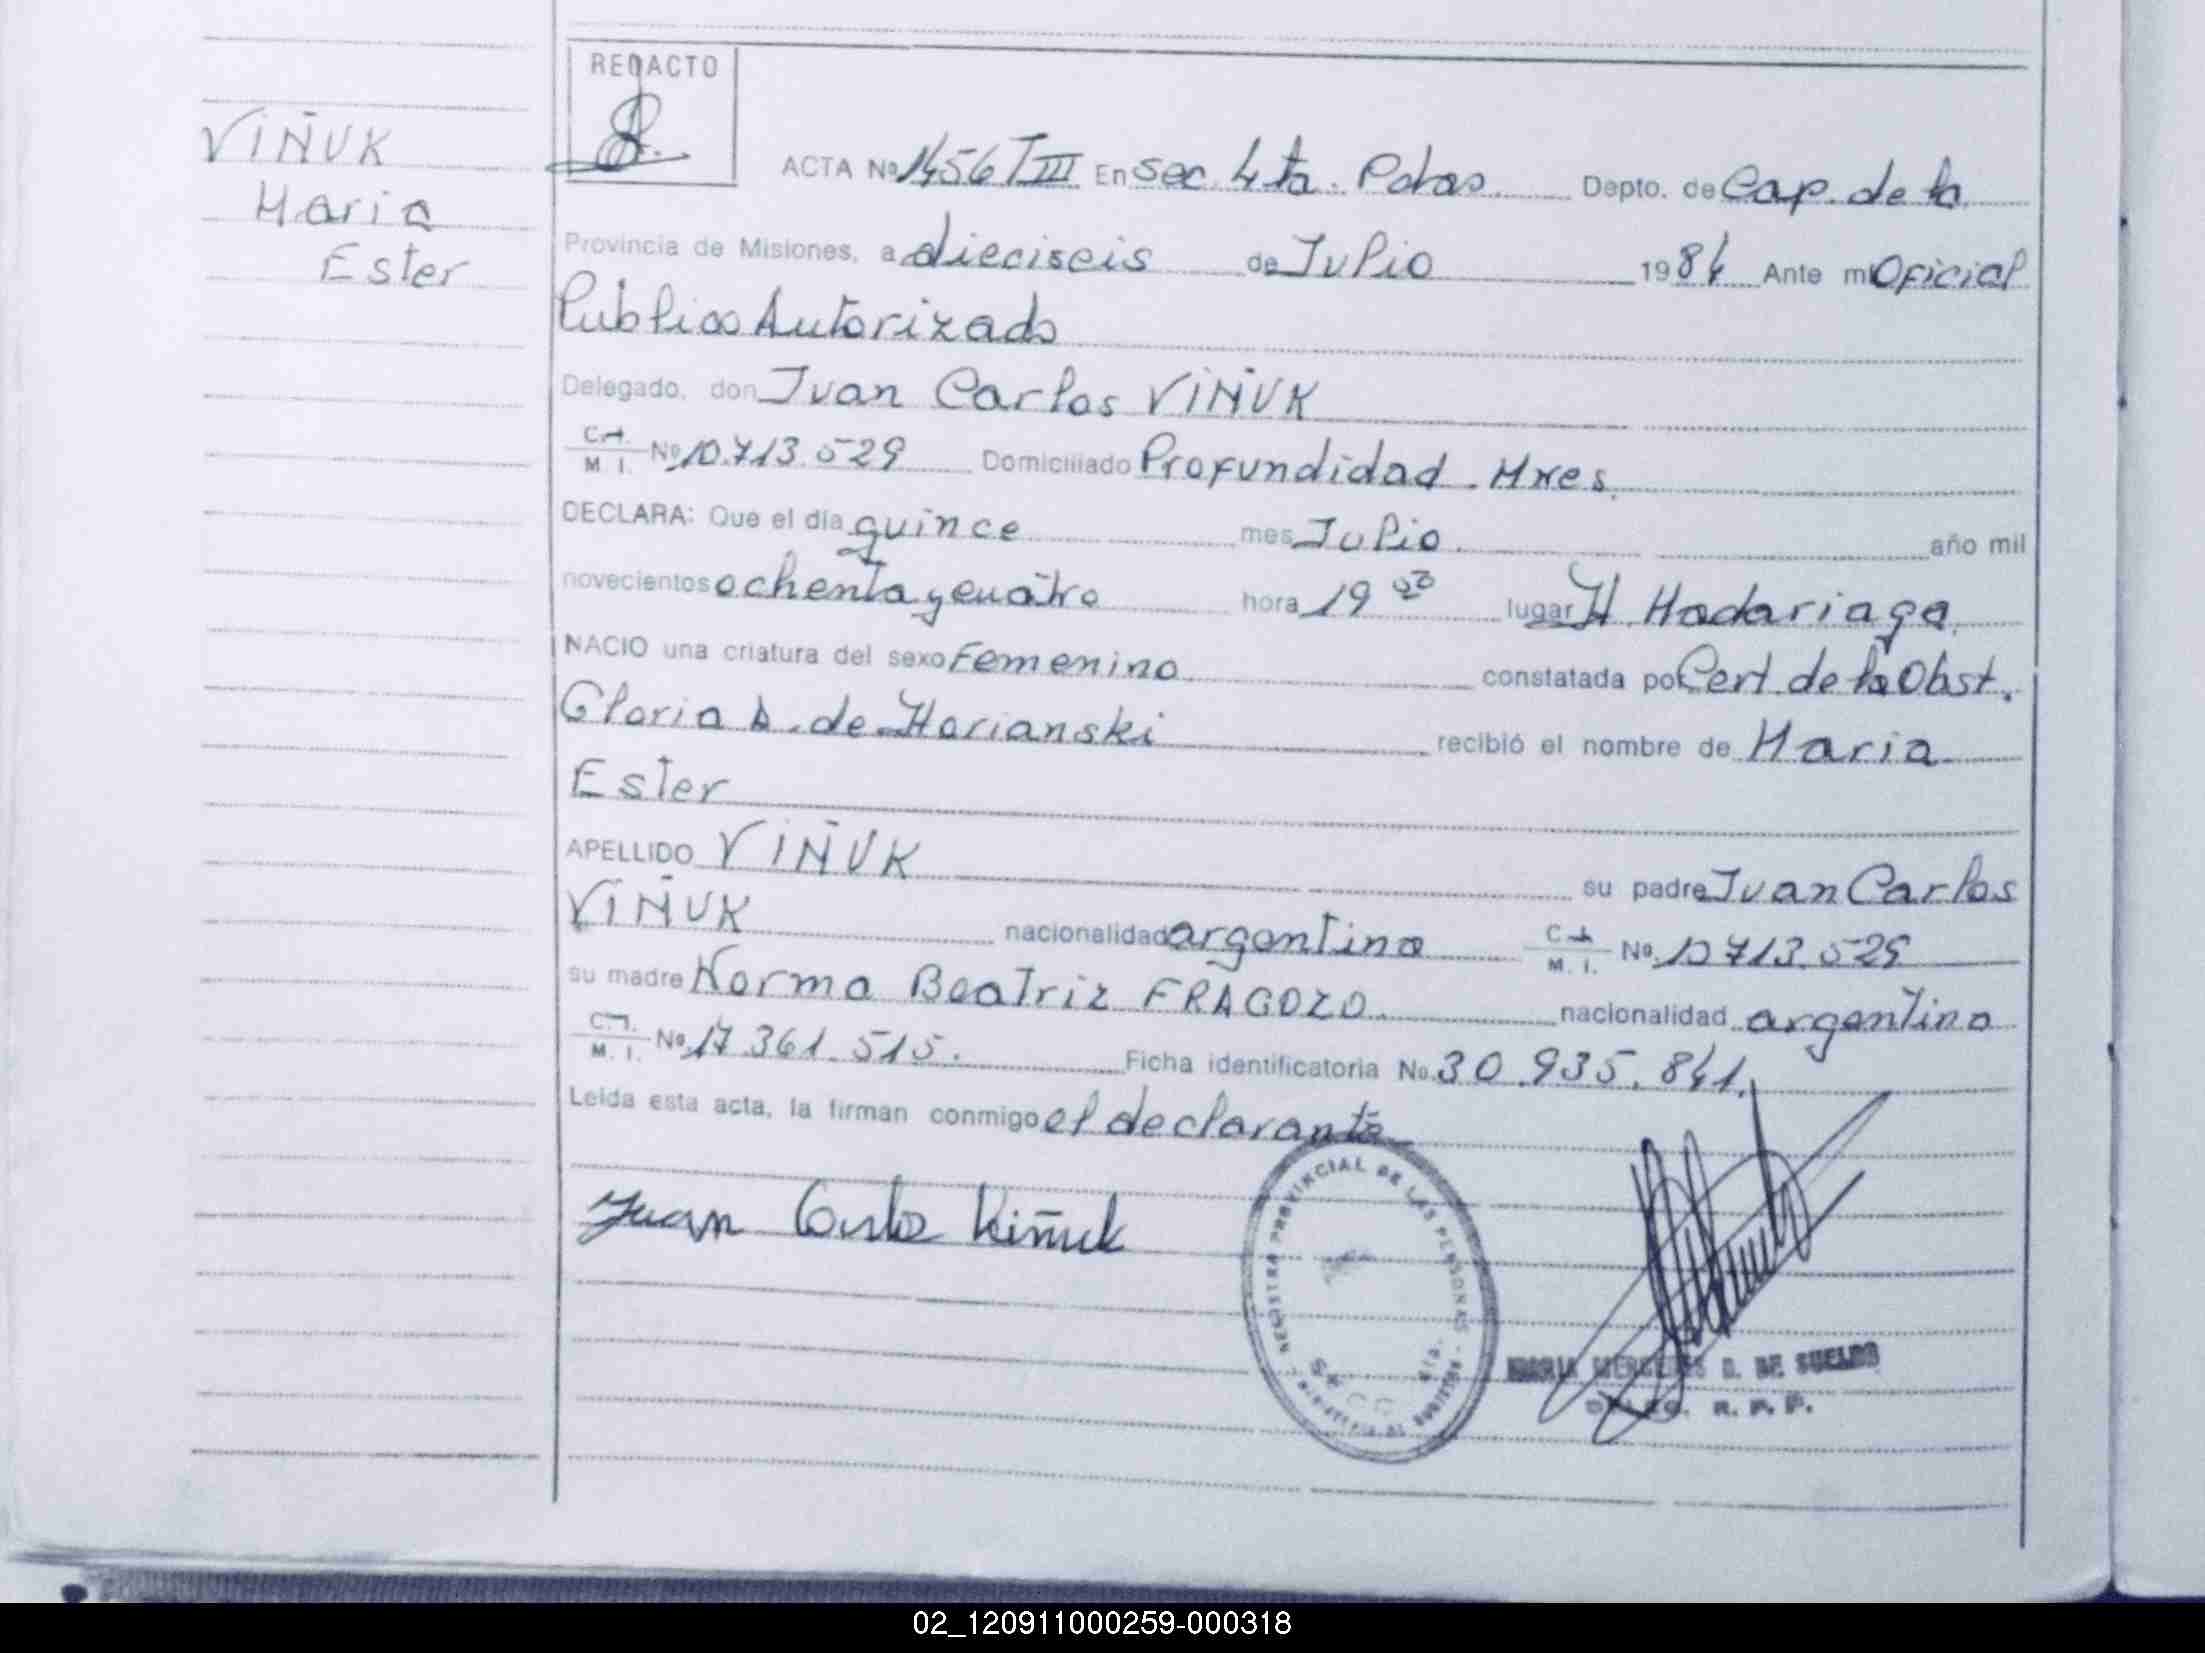 VIÑUK
Maria
Ester
REDACTO
ACTA Nº 1456 T III En Sec. 4ta. Pdas. Depto. de Cap. de la
Provincia de Misiones, a dieciseis de Julio 1984 Ante mi Oficial
Publico Autorizado
Delegado, don Juan Carlos VIÑUK
C. I. / M. I. Nº 10.713.529 Domiciliado Profundidad. Mnes.
DECLARA: Que el día quince mes Julio. año mil
novecientos ochenta y cuatro hora 19 lugar H. Madariaga.
NACIO una criatura del sexo Femenino. constatada por Cert. de la Obst.
Gloria de Horianski recibió el nombre de Maria
Ester
APELLIDO VIÑUK su padre Juan Carlos
VIÑUK nacionalidad argentina C. I. / M. I. No. 10 713.529
su madre Norma Beatriz FRAGOZO. nacionalidad argentina
C. I. / M. I. No. 17.361.515. Ficha identificatoria No. 30.935.841.
Leída esta acta, la firman conmigo el declarante
Juan Carlos Viñuk
REGISTRO PROVINCIAL DE LAS PERSONAS
MARIA MERCEDES D. DE SUELDO
R. P. P.
02_120911000259-000318